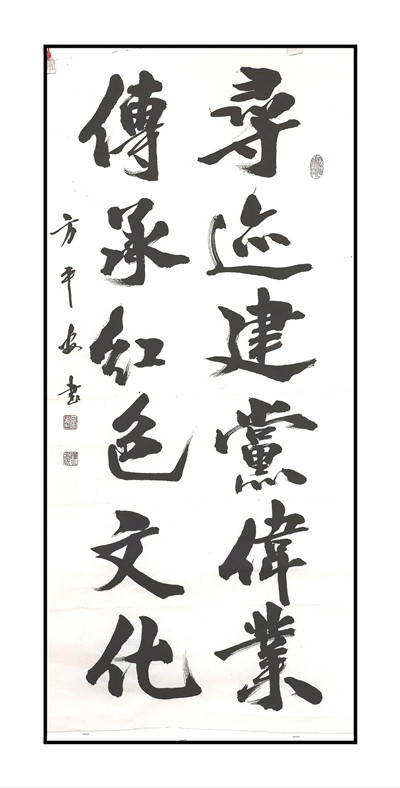 尋迹建黨偉業
傳承紅色文化
方平安書